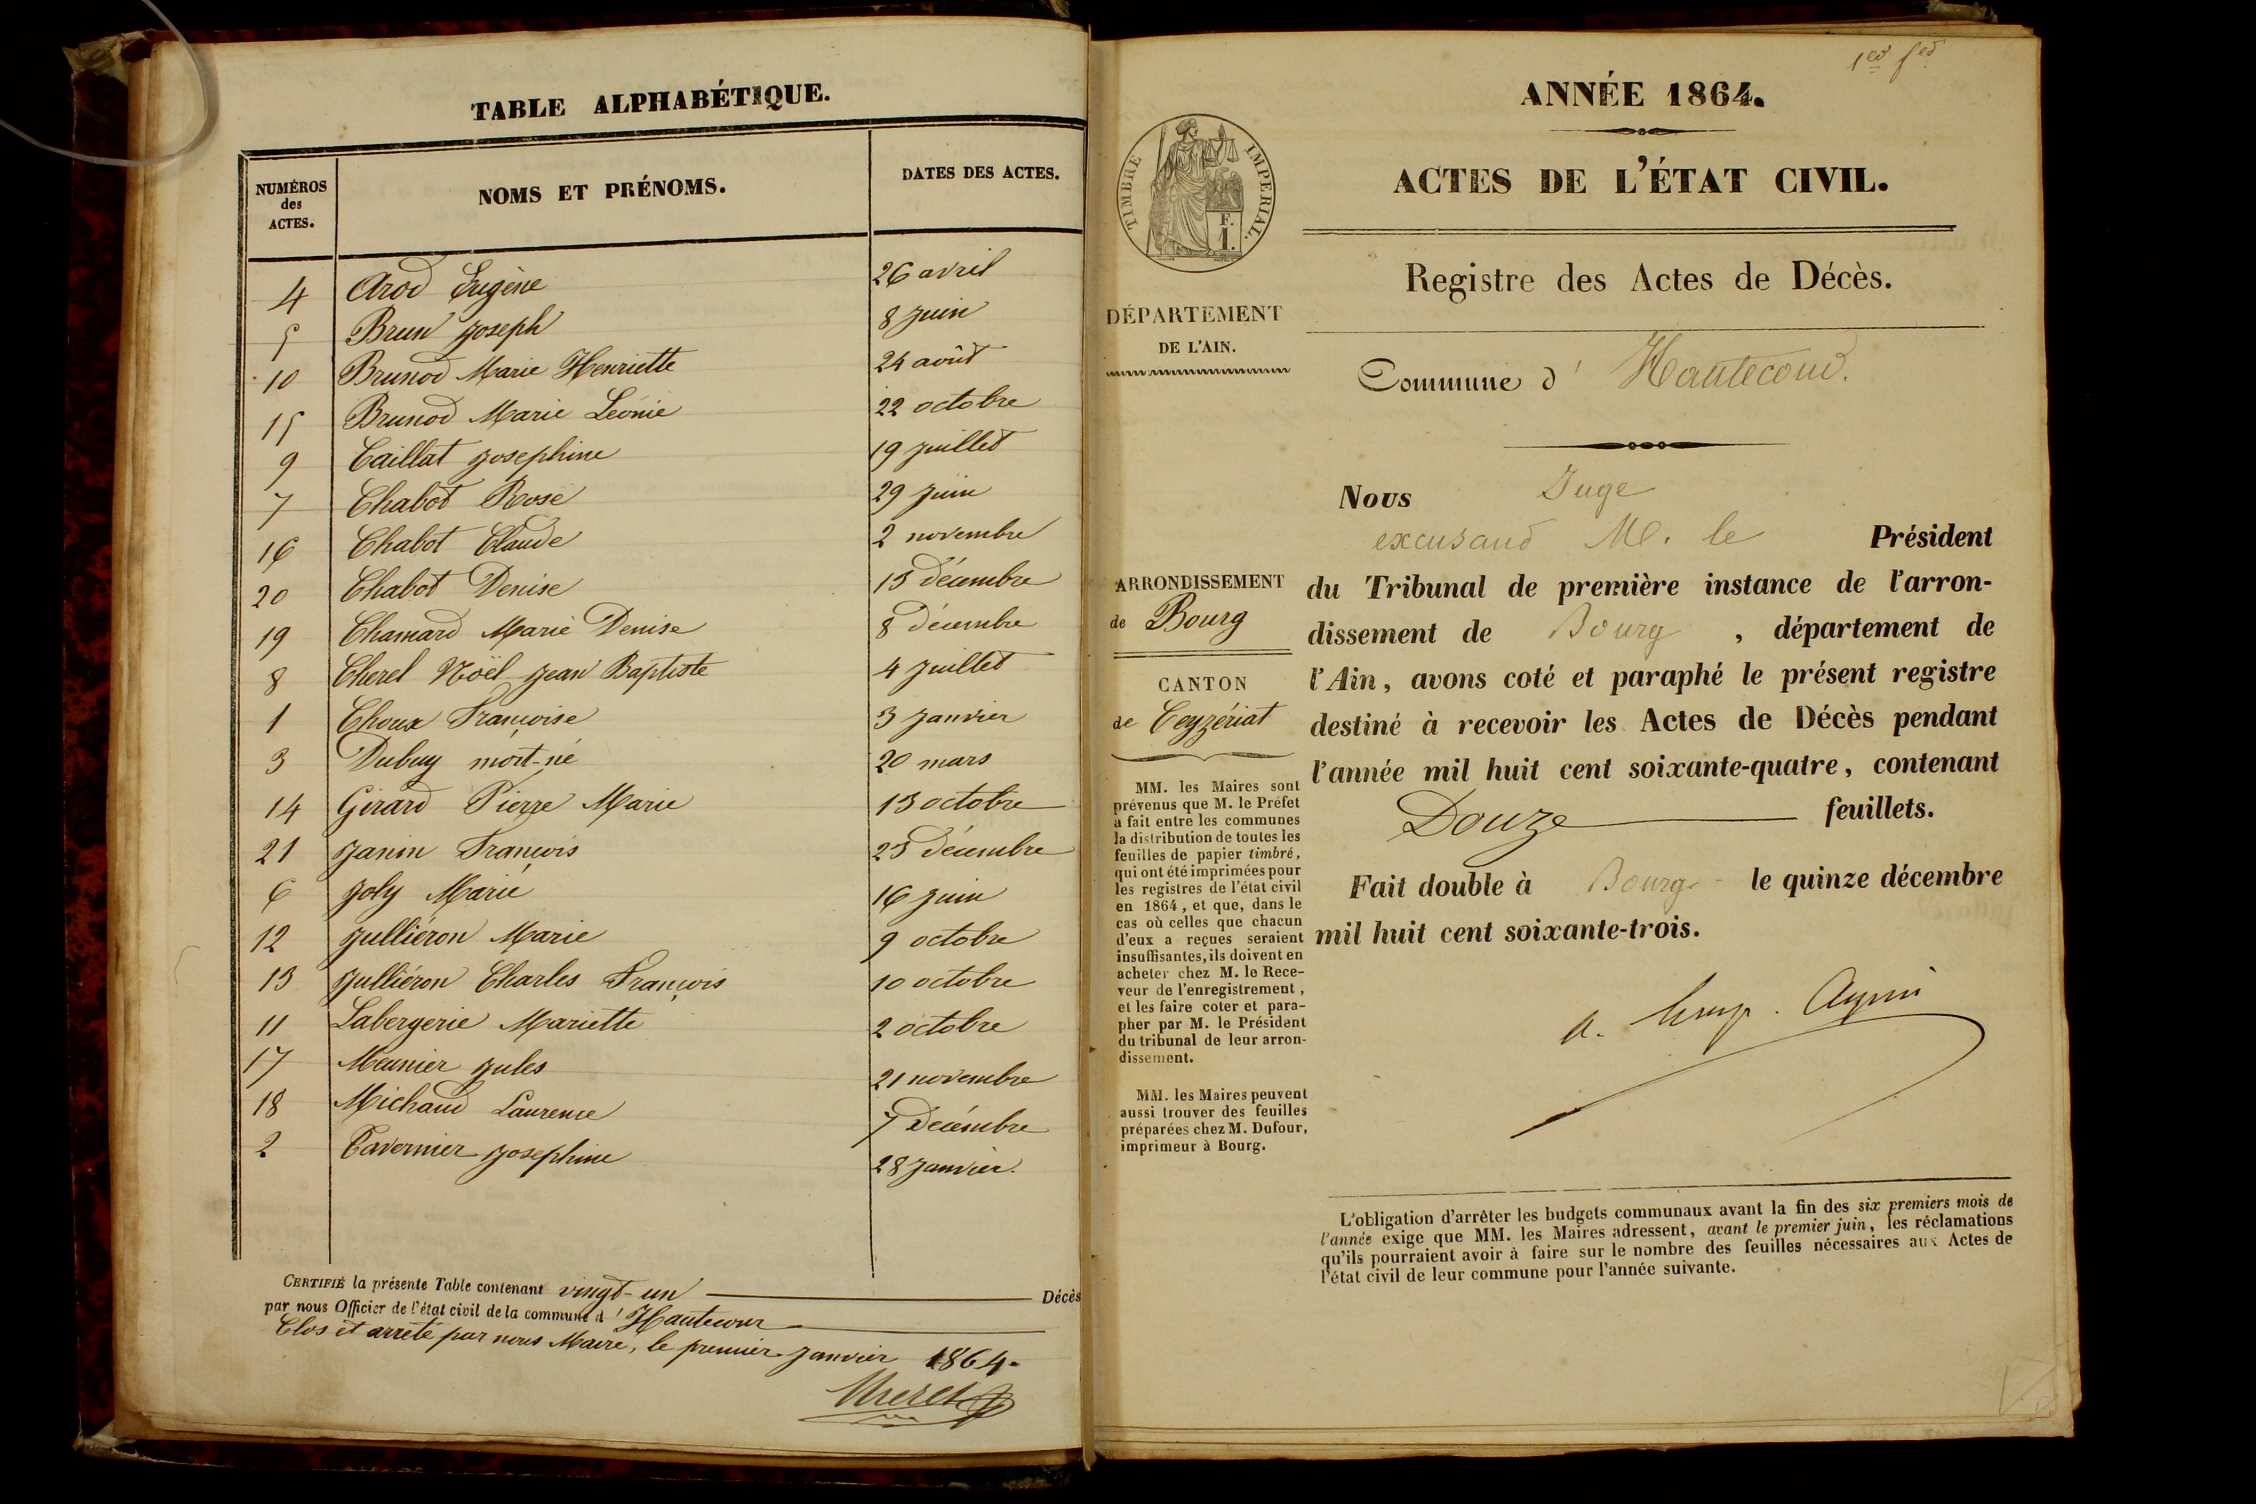 TABLE ALPHABÉTIQUE.
NUMÉROS des ACTES.
NOMS ET PRÉNOMS.
DATES DES ACTES.
4 Arod Eugène 26 avril
5 Brun Joseph 8 Juin
10 Brunod Marie Henriette 24 août
15 Brunod Marie Léonie 22 octobre
9 Caillat Josephine 19 Juillet
7 Chabot Rose 29 Juin
16 Chabot Claude 2 novembre
20 Chabot Denise 13 décembre
19 Chamard Marie Denise 8 Décembre
8 Cherel Noël Jean Baptiste 4 Juillet
1 Choux Françoise 3 Janvier
3 Dubuy mort-né 20 mars
14 Girard Pierre Marie 13 octobre
21 Janin François 23 Décembre
6 Joly Marie 16 Juin
12 Julliéron Marie 9 octobre
13 Julliéron Charles François 10 octobre
11 Labergerie Mariette 2 octobre
17 Meunier Jules 21 novembre
18 Michaud Laurence 7 Décembre
2 Tavernier Josephine 28 Janvier.
CERTIFIÉ la présente Table contenant vingt-un Décès
par nous Officier de l'état civil de la commune d' Hautecour
Clos et arrêté par nous Maire, le premier Janvier 1864.
ANNÉE 1864.
ACTES DE L'ÉTAT CIVIL.
TIMBRE IMPERIAL.
F.
1.
Registre des Actes de Décès.
DÉPARTEMENT
DE L'AIN.
Commune d' Hautecour.
ARRONDISSEMENT
de Bourg
CANTON
de Ceyzériat
MM. les Maires sont
prévenus que M. le Préfet
a fait entre les communes
la distribution de toutes les
feuilles de papier timbré,
qui ont été imprimées pour
les registres de l'état civil
en 1864, et que, dans le
cas où celles que chacun
d'eux a reçues seraient
insuffisantes, ils doivent en
acheter chez M. le Rece-
veur de l'enregistrement,
et les faire coter et para-
pher par M. le Président
du tribunal de leur arron-
dissement.
MM. les Maires peuvent
aussi trouver des feuilles
préparées chez M. Dufour,
imprimeur à Bourg.
Nous Juge
excusand M. le Président
du Tribunal de première instance de l'arron-
dissement de Bourg, département de
l'Ain, avons coté et paraphé le présent registre
destiné à recevoir les Actes de Décès pendant
l'année mil huit cent soixante-quatre, contenant
Douze feuillets.
Fait double à Bourg le quinze décembre
mil huit cent soixante-trois.
L'obligation d'arrêter les budgets communaux avant la fin des six premiers mois de
l'année exige que MM. les Maires adressent, avant le premier juin, les réclamations
qu'ils pourraient avoir à faire sur le nombre des feuilles nécessaires aux Actes de
l'état civil de leur commune pour l'année suivante.